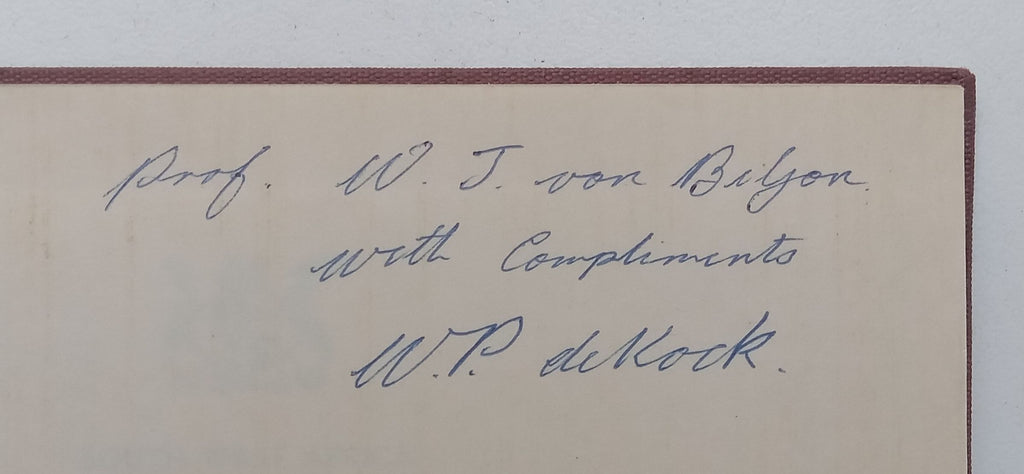 Prof. W. J. von Biljon.
with Compliments
W.P. de Kock.